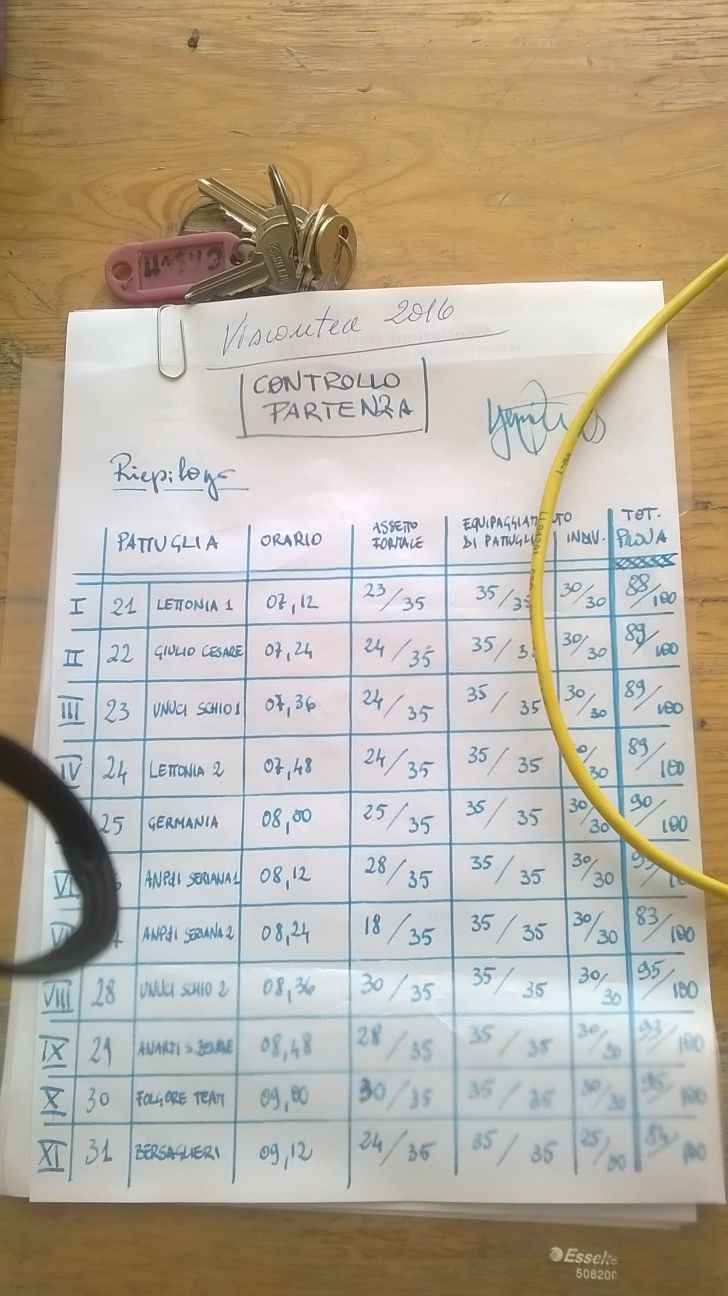 Viscontea 2016
CONTROLLO
PARTENZA
Riepilogo
PATTUGLIA ORARIO ASSETTO FORMALE EQUIPAGGIAMENTO DI PATTUGLIA INDIV. TOT. PROVA
I 21 LETTONIA 1 07,12 23/35 35/35 30/30 88/100
II 22 GIULIO CESARE 07,24 24/35 35/35 30/30 89/100
III 23 UNUCI SCHIO 1 07,36 24/35 35/35 30/30 89/100
IV 24 LETTONIA 2 07,48 24/35 35/35 30/30 89/100
25 GERMANIA 08,00 25/35 35/35 30/30 90/100
VI ANPd'I SERIANA 1 08,12 28/35 35/35 30/30 93/100
ANPd'I SERIANA 2 08,24 18/35 35/35 30/30 83/100
VIII 28 UNUCI SCHIO 2 08,36 30/35 35/35 30/30 95/100
IX 29 08,48 28/35 35/35 30/30 93/100
X 30 FOLGORE TEAM 09,00 30/35 35/35 30/30 95/100
XI 31 BERSAGLIERI 09,12 24/35 35/35 25/30 84/100
Esselte
508200